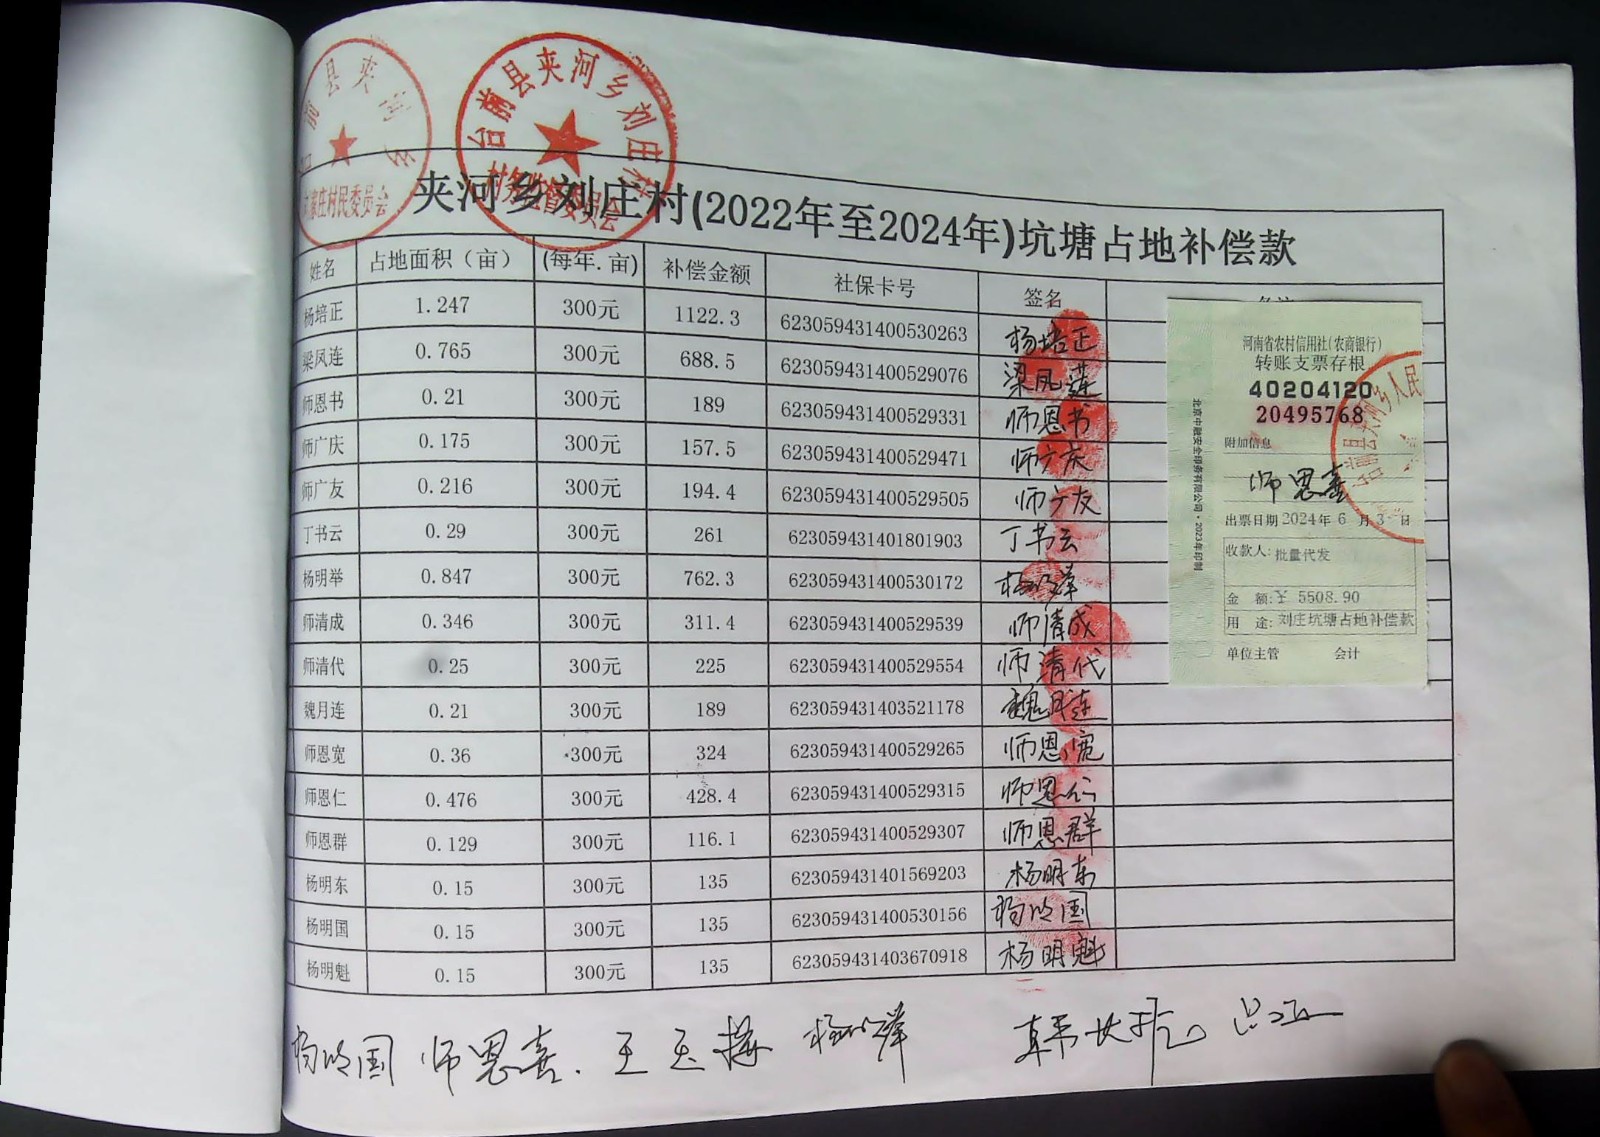 台前县夹河乡
刘庄村民委员会
台前县夹河乡刘庄村
村务监督委员会
夹河乡刘庄村(2022年至2024年)坑塘占地补偿款
姓名 占地面积（亩） (每年.亩) 补偿金额 社保卡号 签名
杨培正 1.247 300元 1122.3 623059431400530263 杨培正
梁凤连 0.765 300元 688.5 623059431400529076 梁凤莲
师恩书 0.21 300元 189 623059431400529331 师恩书
师广庆 0.175 300元 157.5 623059431400529471 师广庆
师广友 0.216 300元 194.4 623059431400529505 师广友
丁书云 0.29 300元 261 623059431401801903 丁书云
杨明举 0.847 300元 762.3 623059431400530172 杨明举
师清成 0.346 300元 311.4 623059431400529539 师清成
师清代 0.25 300元 225 623059431400529554 师清代
魏月连 0.21 300元 189 623059431403521178 魏月连
师恩宽 0.36 300元 324 623059431400529265 师恩宽
师恩仁 0.476 300元 428.4 623059431400529315 师恩仁
师恩群 0.129 300元 116.1 623059431400529307 师恩群
杨明东 0.15 300元 135 623059431401569203 杨明东
杨明国 0.15 300元 135 623059431400530156 杨明国
杨明魁 0.15 300元 135 623059431403670918 杨明魁
河南省农村信用社(农商银行)
转账支票存根
40204120
20495768
附加信息
师恩喜
出票日期 2024年 6 月 3 日
收款人: 批量代发
金 额: 5508.90
用 途: 刘庄坑塘占地补偿款
单位主管 会计
北京中融安全印务有限公司·2023年印制
台前县夹河乡人民
杨明国 师恩喜. 王玉 杨明举